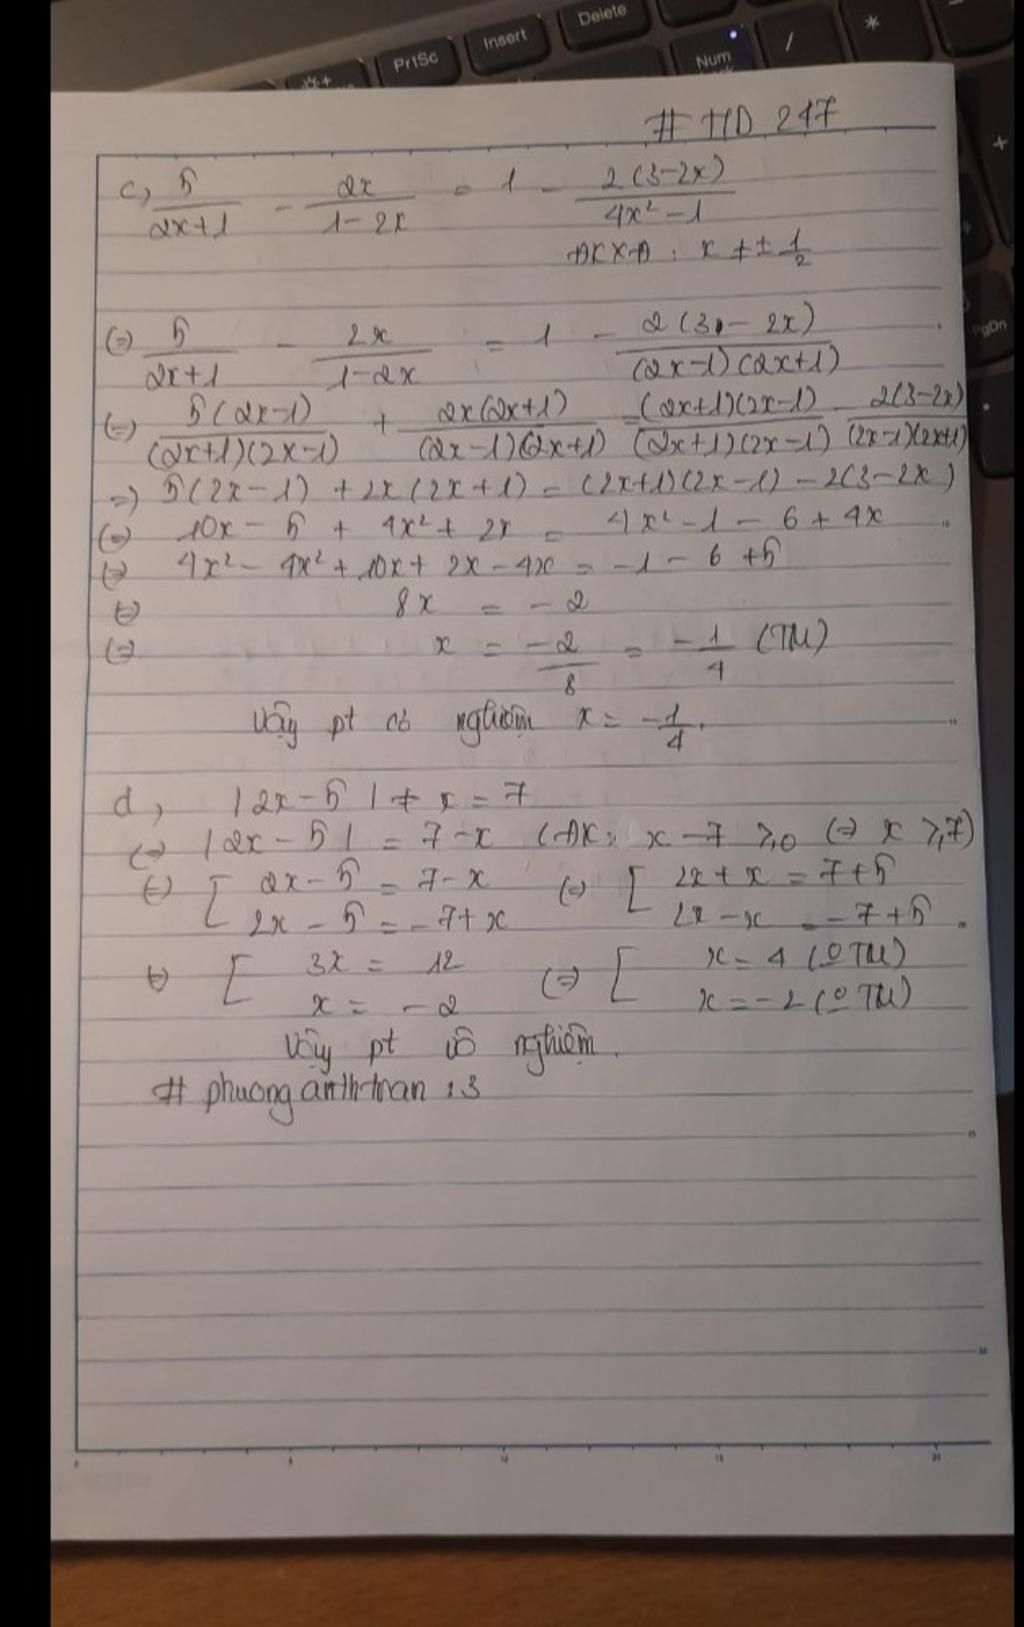 Delete
Insert
PrtSc
Num
/
*
+
PgDn
# HD 247
c, 5/(2x+1) - 2x/(1-2x) = 1 - 2(3-2x)/(4x²-1)
ĐKXĐ: x ≠ ± 1/2
(=) 5/(2x+1) - 2x/(1-2x) = 1 - 2(3-2x)/((2x-1)(2x+1))
(=) 5(2x-1)/((2x+1)(2x-1)) + 2x(2x+1)/((2x-1)(2x+1)) = (2x+1)(2x-1)/((2x+1)(2x-1)) - 2(3-2x)/((2x-1)(2x+1))
=) 5(2x-1) + 2x(2x+1) = (2x+1)(2x-1) - 2(3-2x)
(=) 10x - 5 + 4x² + 2x = 4x² - 1 - 6 + 4x
(=) 4x² - 4x² + 10x + 2x - 4x = -1 - 6 + 5
(=) 8x = -2
(=) x = -2/8 = -1/4 (TM)
Vậy pt có nghiệm x = -1/4.
d, |2x-5| + x = 7
(=) |2x-5| = 7-x (ĐK: x-7 ≥0 (=) x ≥7)
(=) [ 2x-5 = 7-x (=) [ 2x+x = 7+5
2x-5 = -7+x 2x-x = -7+5
(=) [ 3x = 12 (=) [ x = 4 (0 TM)
x = -2 x = -2 (0 TM)
Vậy pt vô nghiệm.